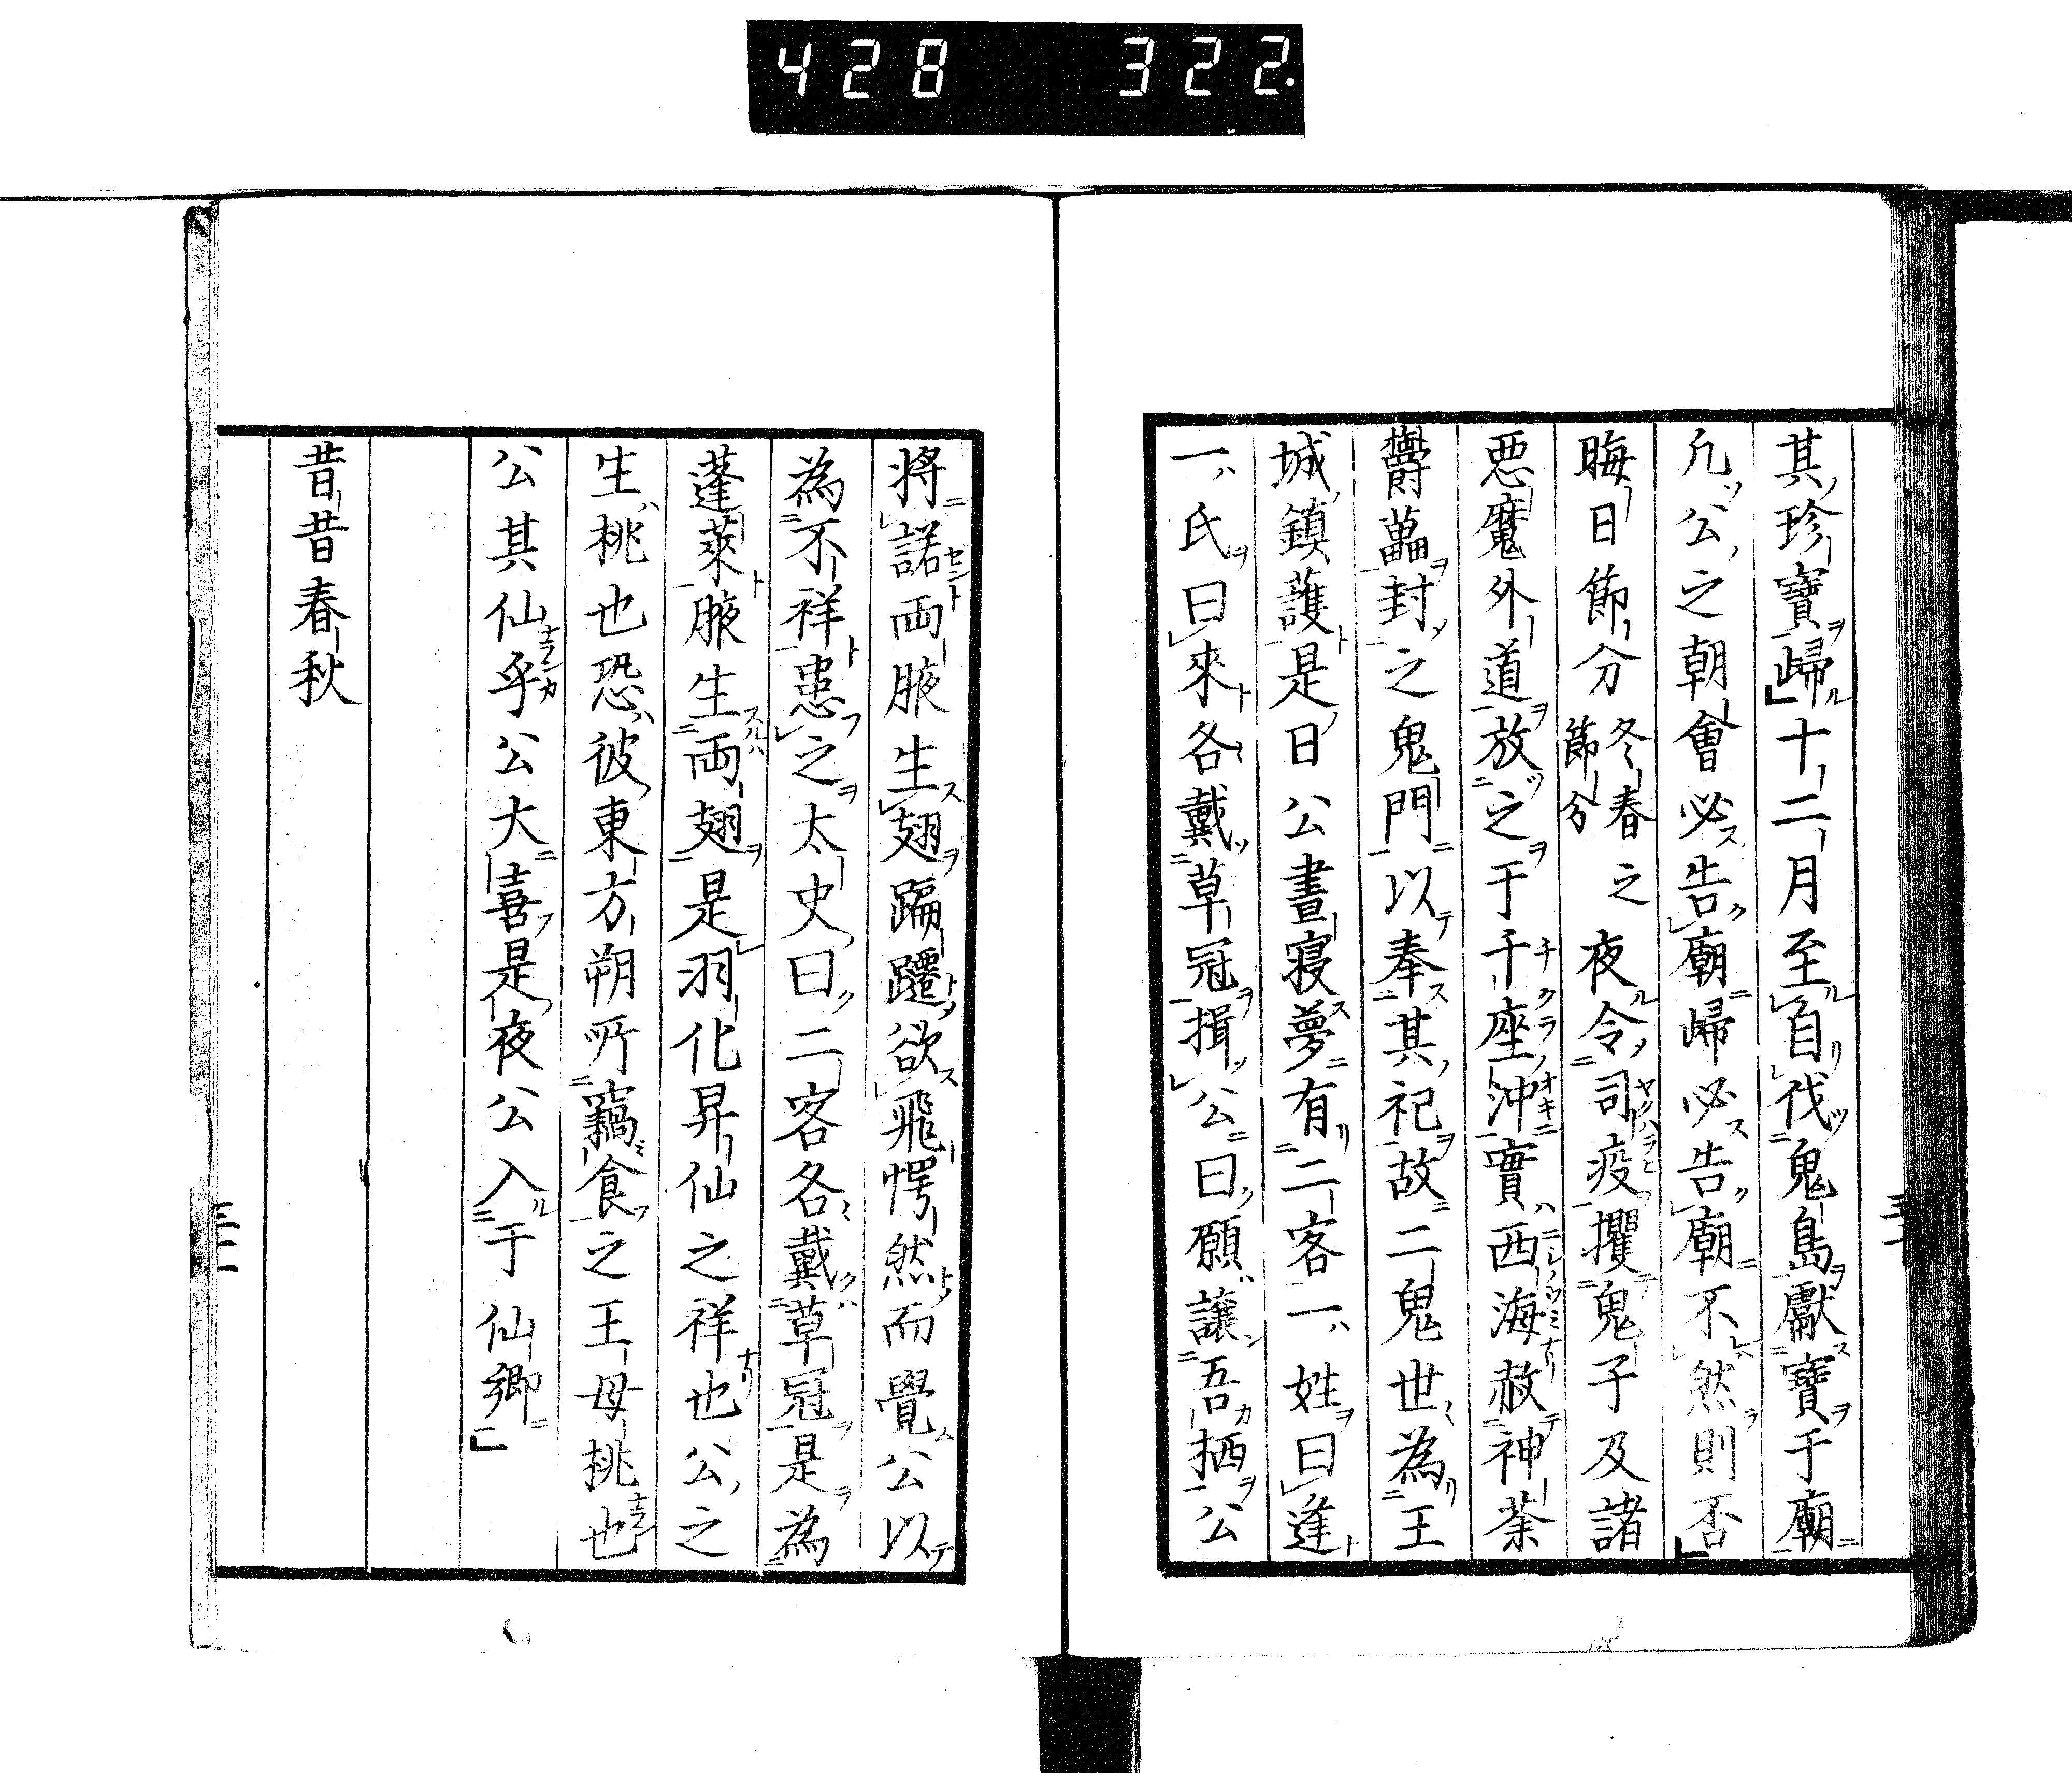 428 322.
其珍寶歸十二月至自伐鬼島獻寶于廟
凡公之朝會必告廟歸必告廟不然則否
晦日節分冬春之節分夜令司疫攫鬼子及諸
悪魔外道放之于千座沖實西海赦神荼
欝蘽封之鬼門以奉其祀故二鬼世為王
城鎮護是日公晝寝夢有二客一姓曰逢
一氏曰來各戴草冠揖公曰願讓吾栖公
将諾両腋生翅蹁躚欲飛愕然而覺公以
為不祥患之太史曰二客各戴草冠是為
蓬萊腋生両翅是羽化昇仙之祥也公之
生桃也恐彼東方朔所竊食之王母桃也
公其仙乎公大喜是夜公入于仙郷
昔昔春秋